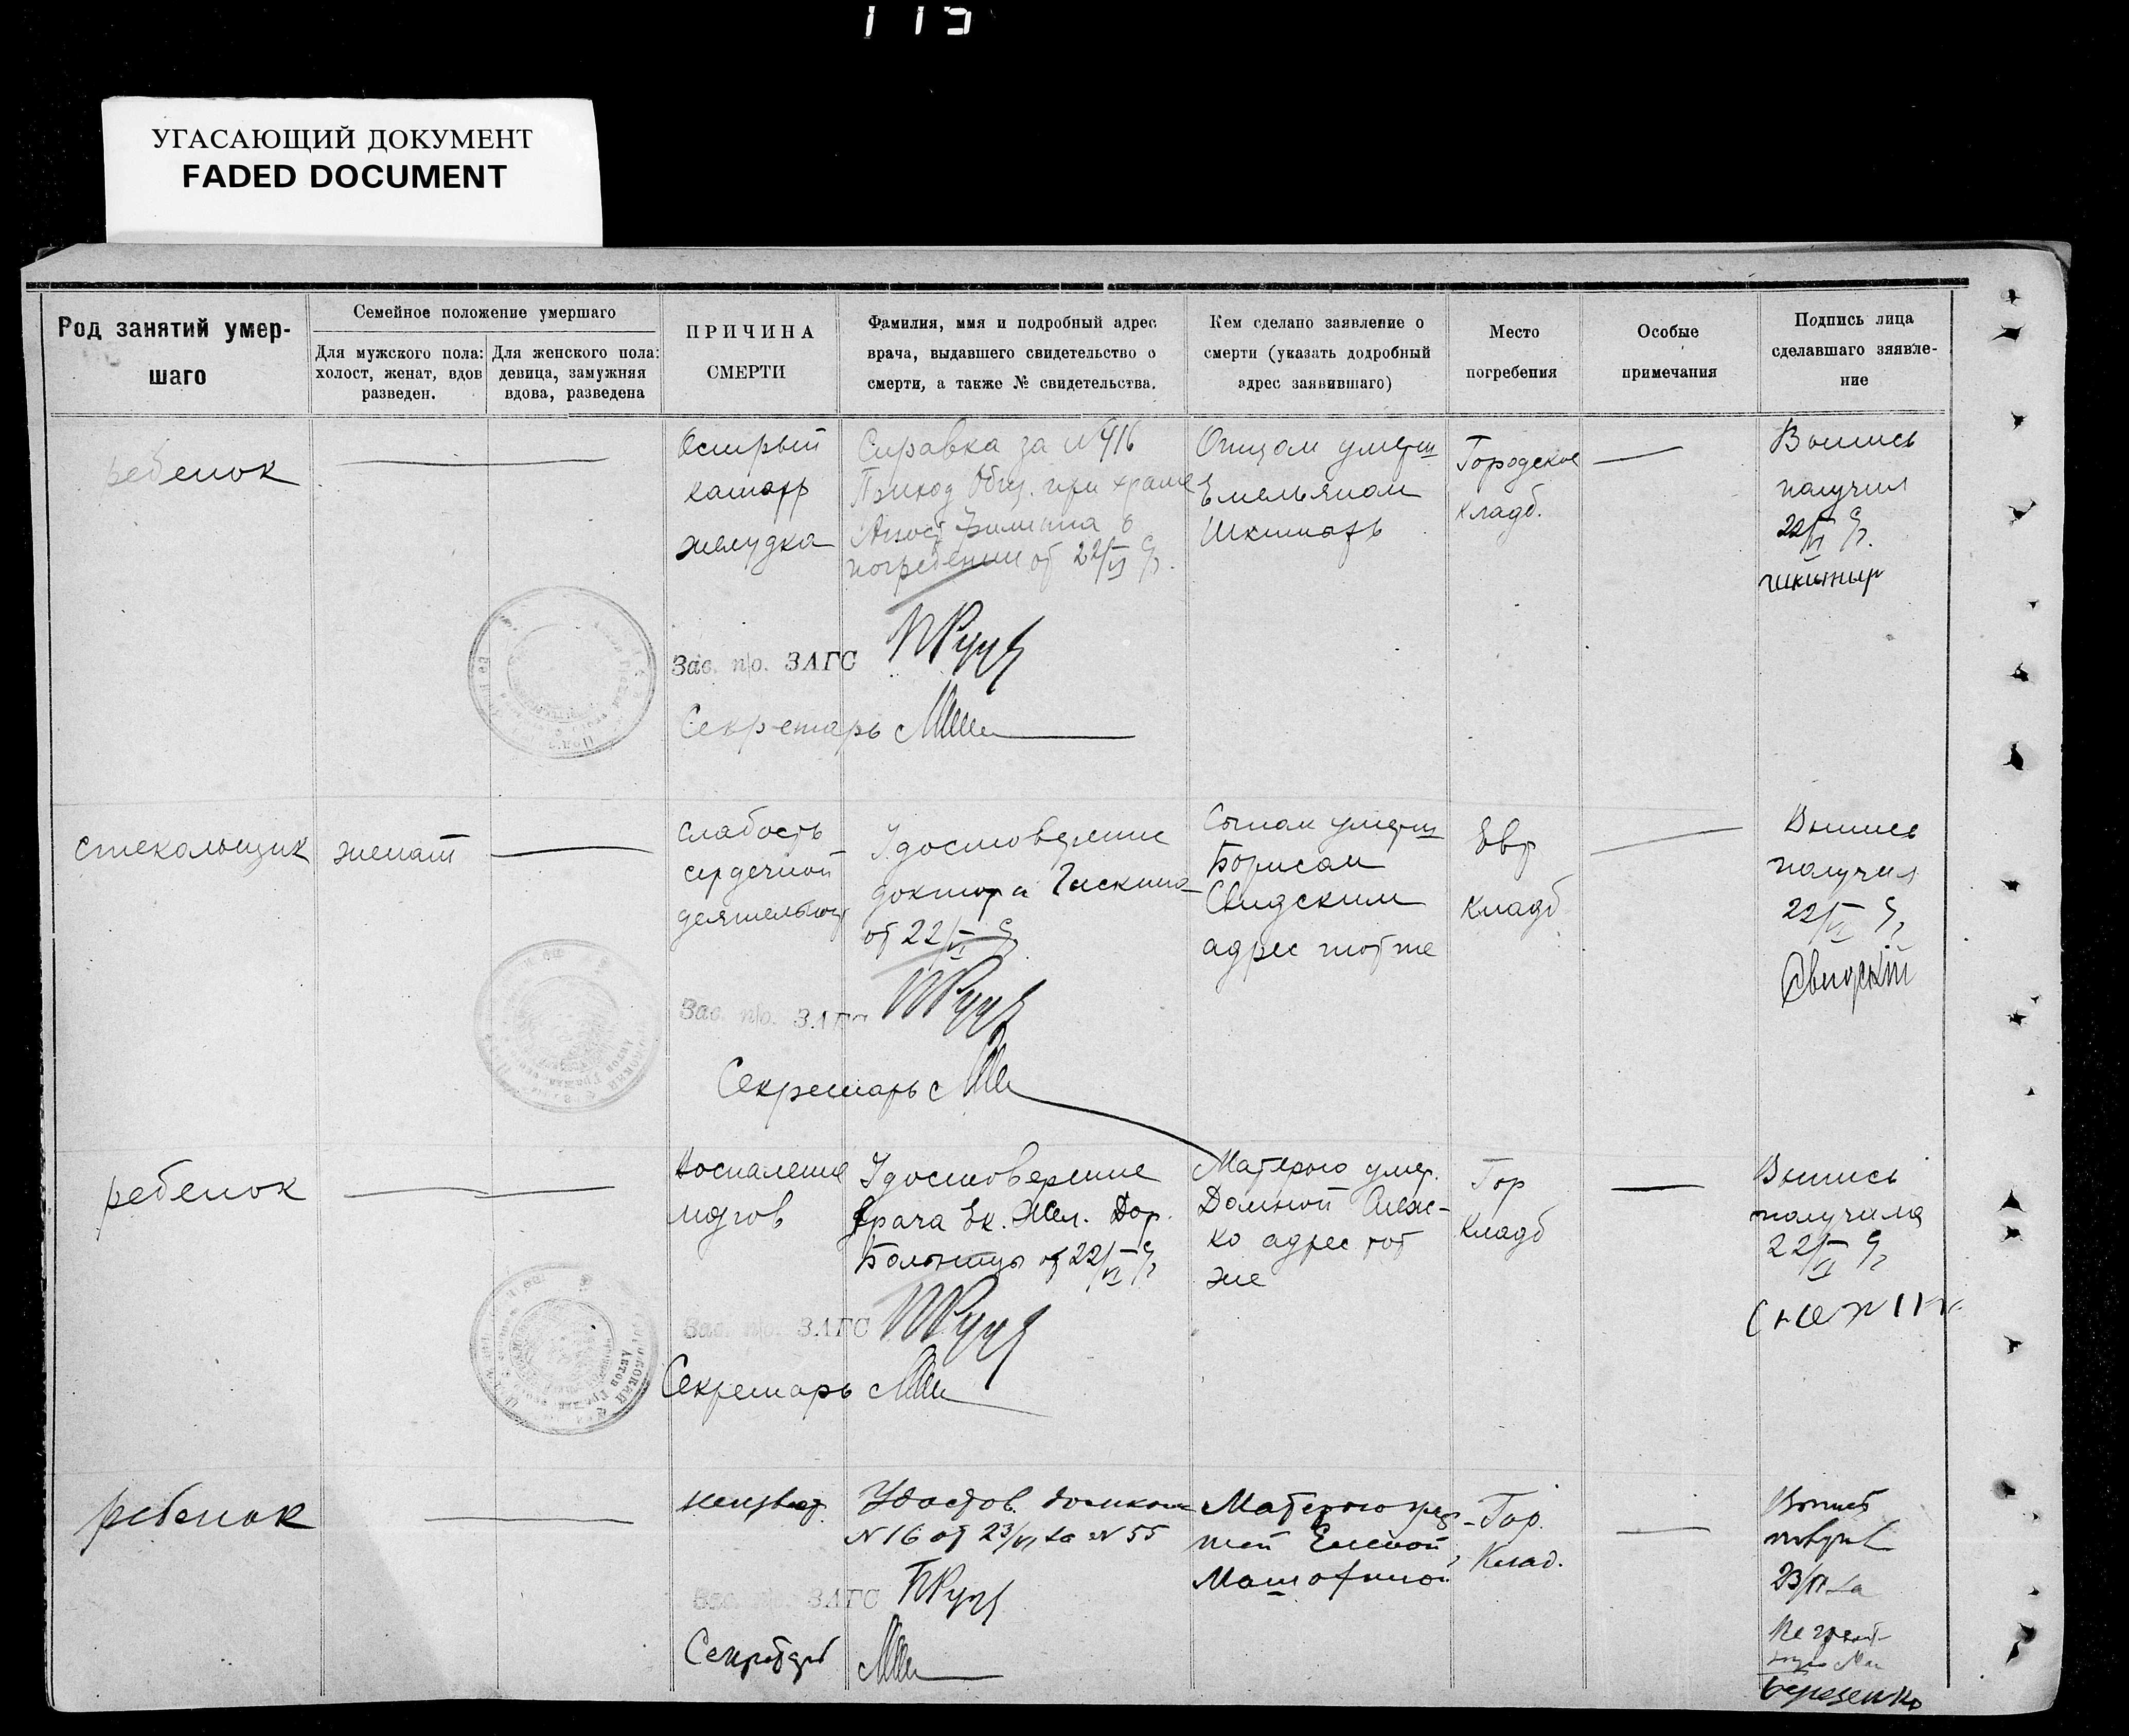 115
УГАСАЮЩИЙ ДОКУМЕНТ
FADED DOCUMENT
Род занятий умер-
шаго
Семейное положение умершаго
Для мужского пола:
холост, женат, вдов
разведен.
Для женского пола:
девица, замужняя
вдова, разведена
ПРИЧИНА
СМЕРТИ
Фамилия, имя и подробный адрес
врача, выдавшего свидетельство о
смерти, а также № свидетельства.
Кем сделано заявление о
смерти (указать додробный
адрес заявившаго)
Место
погребения
Особые
примечания
Подпись лица
сделавшаго зяявле-
ние
ребенок
Острый
катарр
желудка
Справка за №416
Приход Общ. при храме
Апост Филиппа о
погребении от 22/VI с/г.
Отцом умерш
Емельяном
Городское
кладб.
Выпись
получил
22/VI с/г.
Зав. п/о. ЗАГС
Секретарь
стекольщик
женат
слабость
сердечной
деятельност
Удостоверение
доктора
от 22/VI с/г
Сыном умерш
Борисом
Свидским
адрес тот же
Евр
кладб
Выпись
получил
22/VI с/г
Свидский
Зав. п/о. ЗАГС
Секретарь
ребенок
Воспаление
мозгов
Удостоверение
врача Ек. Жел. Дор.
Больницы от 22/VI с/г
Матерью умер.
Домной Снеж-
ко адрес тот
же
Гор
кладб
Выпись
получила
22/VI с/г
Зав. п/о. ЗАГС
Секретарь
ребенок
неизвест
Удостов. домком
№16 от 23/VI за №55
Матерью
Еленой
Гор.
Клад.
Выпись
23/VI
Зав. п/о. ЗАГС
Секретарь
Березенко